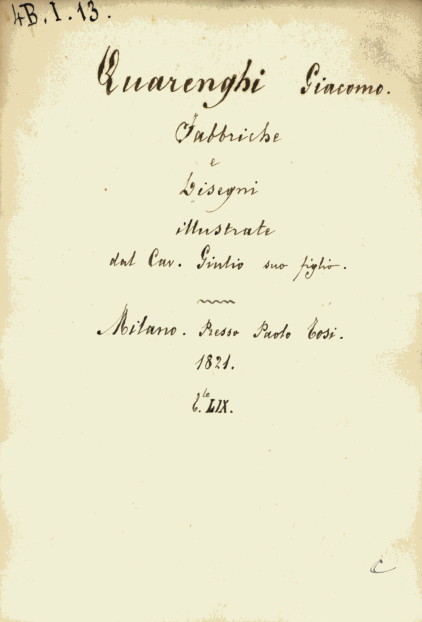 4B.I.13.
Quarenghi Giacomo.
Fabbriche
e
Disegni
illustrate
dal Cav. Giulio suo figlio.
Milano. Presso Paolo Tosi.
1821.
T.le LIX.
C